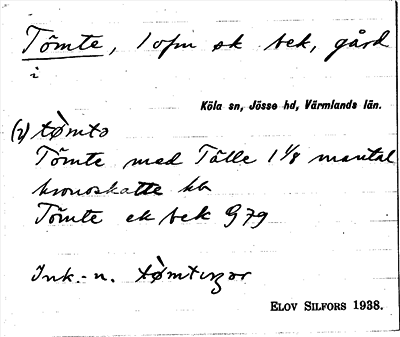 Tömte, 1 ofm ek bek, gård
i
Köla sn, Jösse hd, Värmlands län.
(v) tø̀mtə
Tömte med Tälle 1 1/8 mantal
kronoskatte kb
Tömte ek bek G 79
Ink.-n.
ELOV SILFORS 1938.